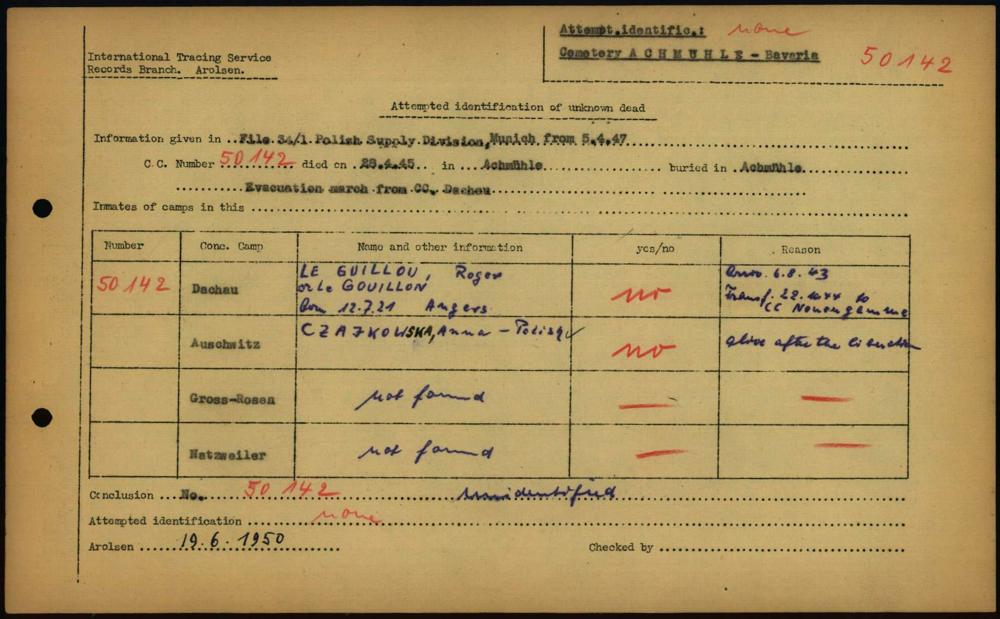 Attempt.identific.: none
Cemetery A C H M Ü H L E - Bavaria
50142
International Tracing Service
Records Branch. Arolsen.
Attempted identification of unknown dead
Information given in ..File.34/1.Polish.Supply.Division,Munich from 5.4.47
C.C. Number 50142 died on 28.4.45 in Achmühle buried in Achmühle
Evacuation march from CC. Dachau
Inmates of camps in this
Number Conc. Camp Name and other information yes/no Reason
50142 Dachau LE GUILLOU, Roger
or Le GOUILLON
born 12.7.21 Angers
no
Arriv. 6.8.43
Transf. 22.10.44 to
CC Neuengamme
Auschwitz CZAJKOWSKA, Anna - Polish no alive after the liberation
Gross-Rosen not found — —
Natzweiler not found — —
Conclusion ...No. 50142 unidentified
Attempted identification none
Arolsen 19.6.1950 Checked by